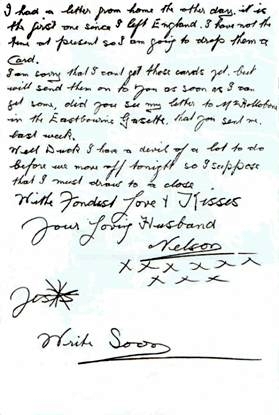 I had a letter from home the other day, it is
the first one since I left England. I have not the
time at present so I am going to drop them a
Card.
I am sorry that I cant get those cards yet. but
will send them on to you as soon as I can
get some, did you see my letter to Mr
in the Eastbourne Gazette. that you sent me.
last week.
Well Duck I have a devil of a lot to do
before we move off tonight so I suppose
that I must draw to a close.
With Fondest Love & Kisses
Your Loving Husband
Nelson
X X X X X X
X X X
Write Soon